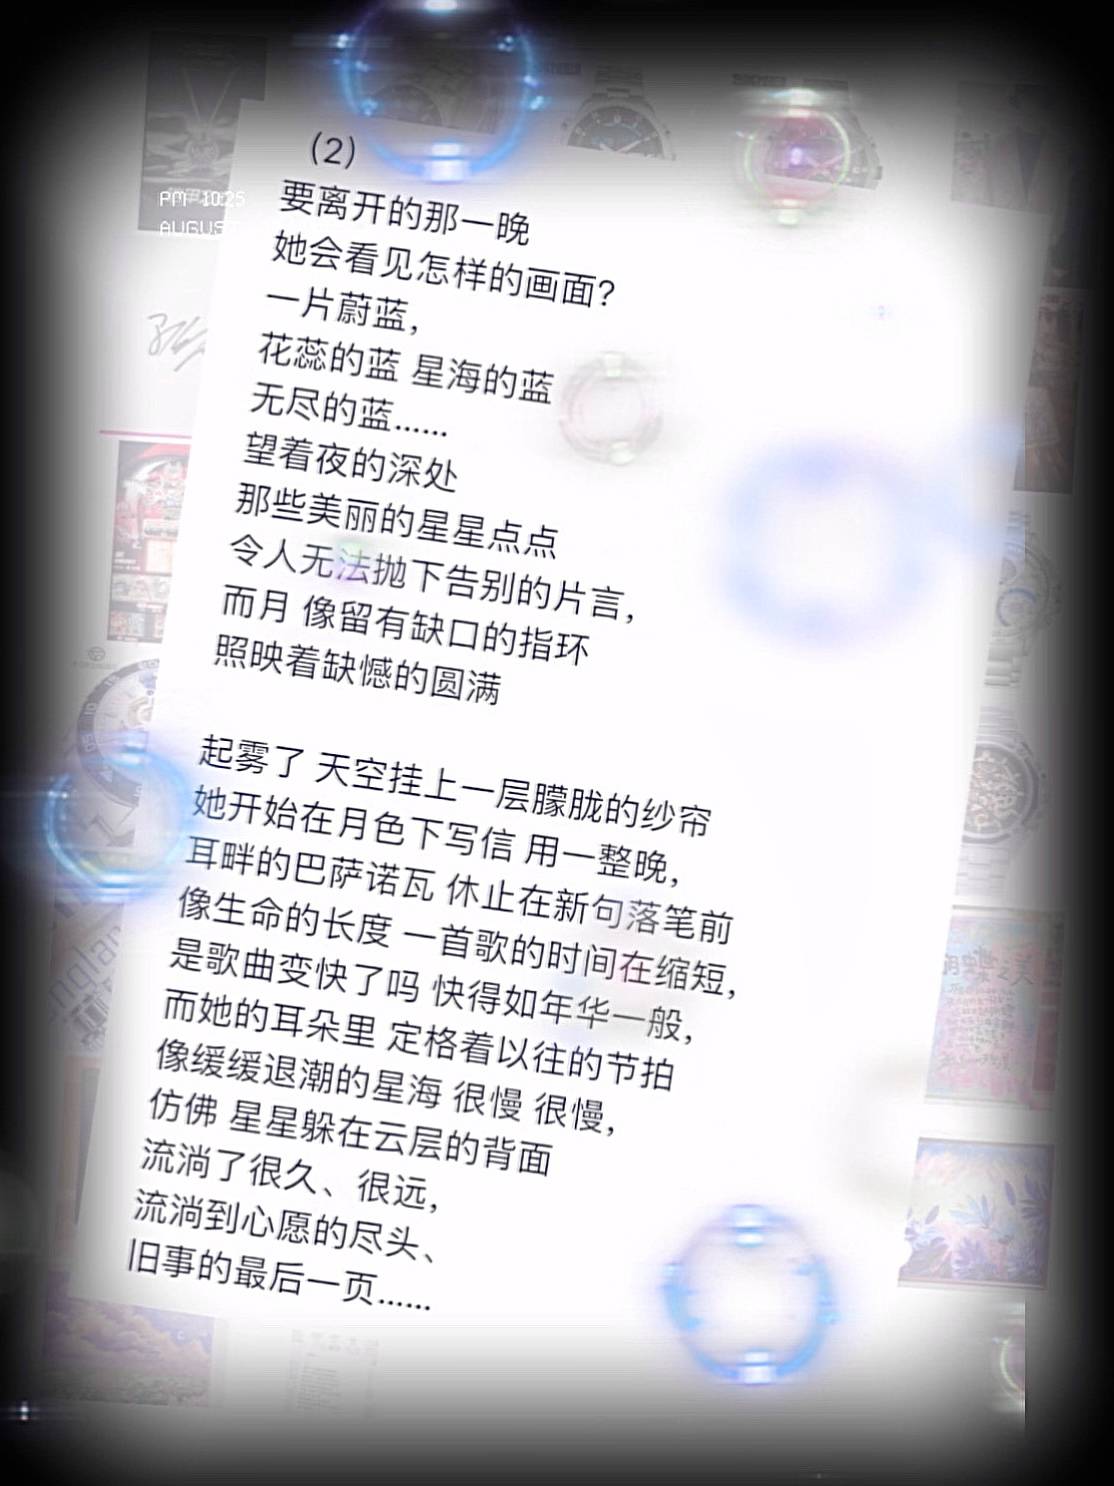 (2)
要离开的那一晚
她会看见怎样的画面?
一片蔚蓝,
花蕊的蓝 星海的蓝
无尽的蓝……
望着夜的深处
那些美丽的星星点点
令人无法抛下告别的片言,
而月 像留有缺口的指环
照映着缺憾的圆满
起雾了 天空挂上一层朦胧的纱帘
她开始在月色下写信 用一整晚,
耳畔的巴萨诺瓦 休止在新句落笔前
像生命的长度 一首歌的时间在缩短,
是歌曲变快了吗 快得如年华一般,
而她的耳朵里 定格着以往的节拍
像缓缓退潮的星海 很慢 很慢,
仿佛 星星躲在云层的背面
流淌了很久、很远,
流淌到心愿的尽头、
旧事的最后一页……
PM 10:25
AUGUST